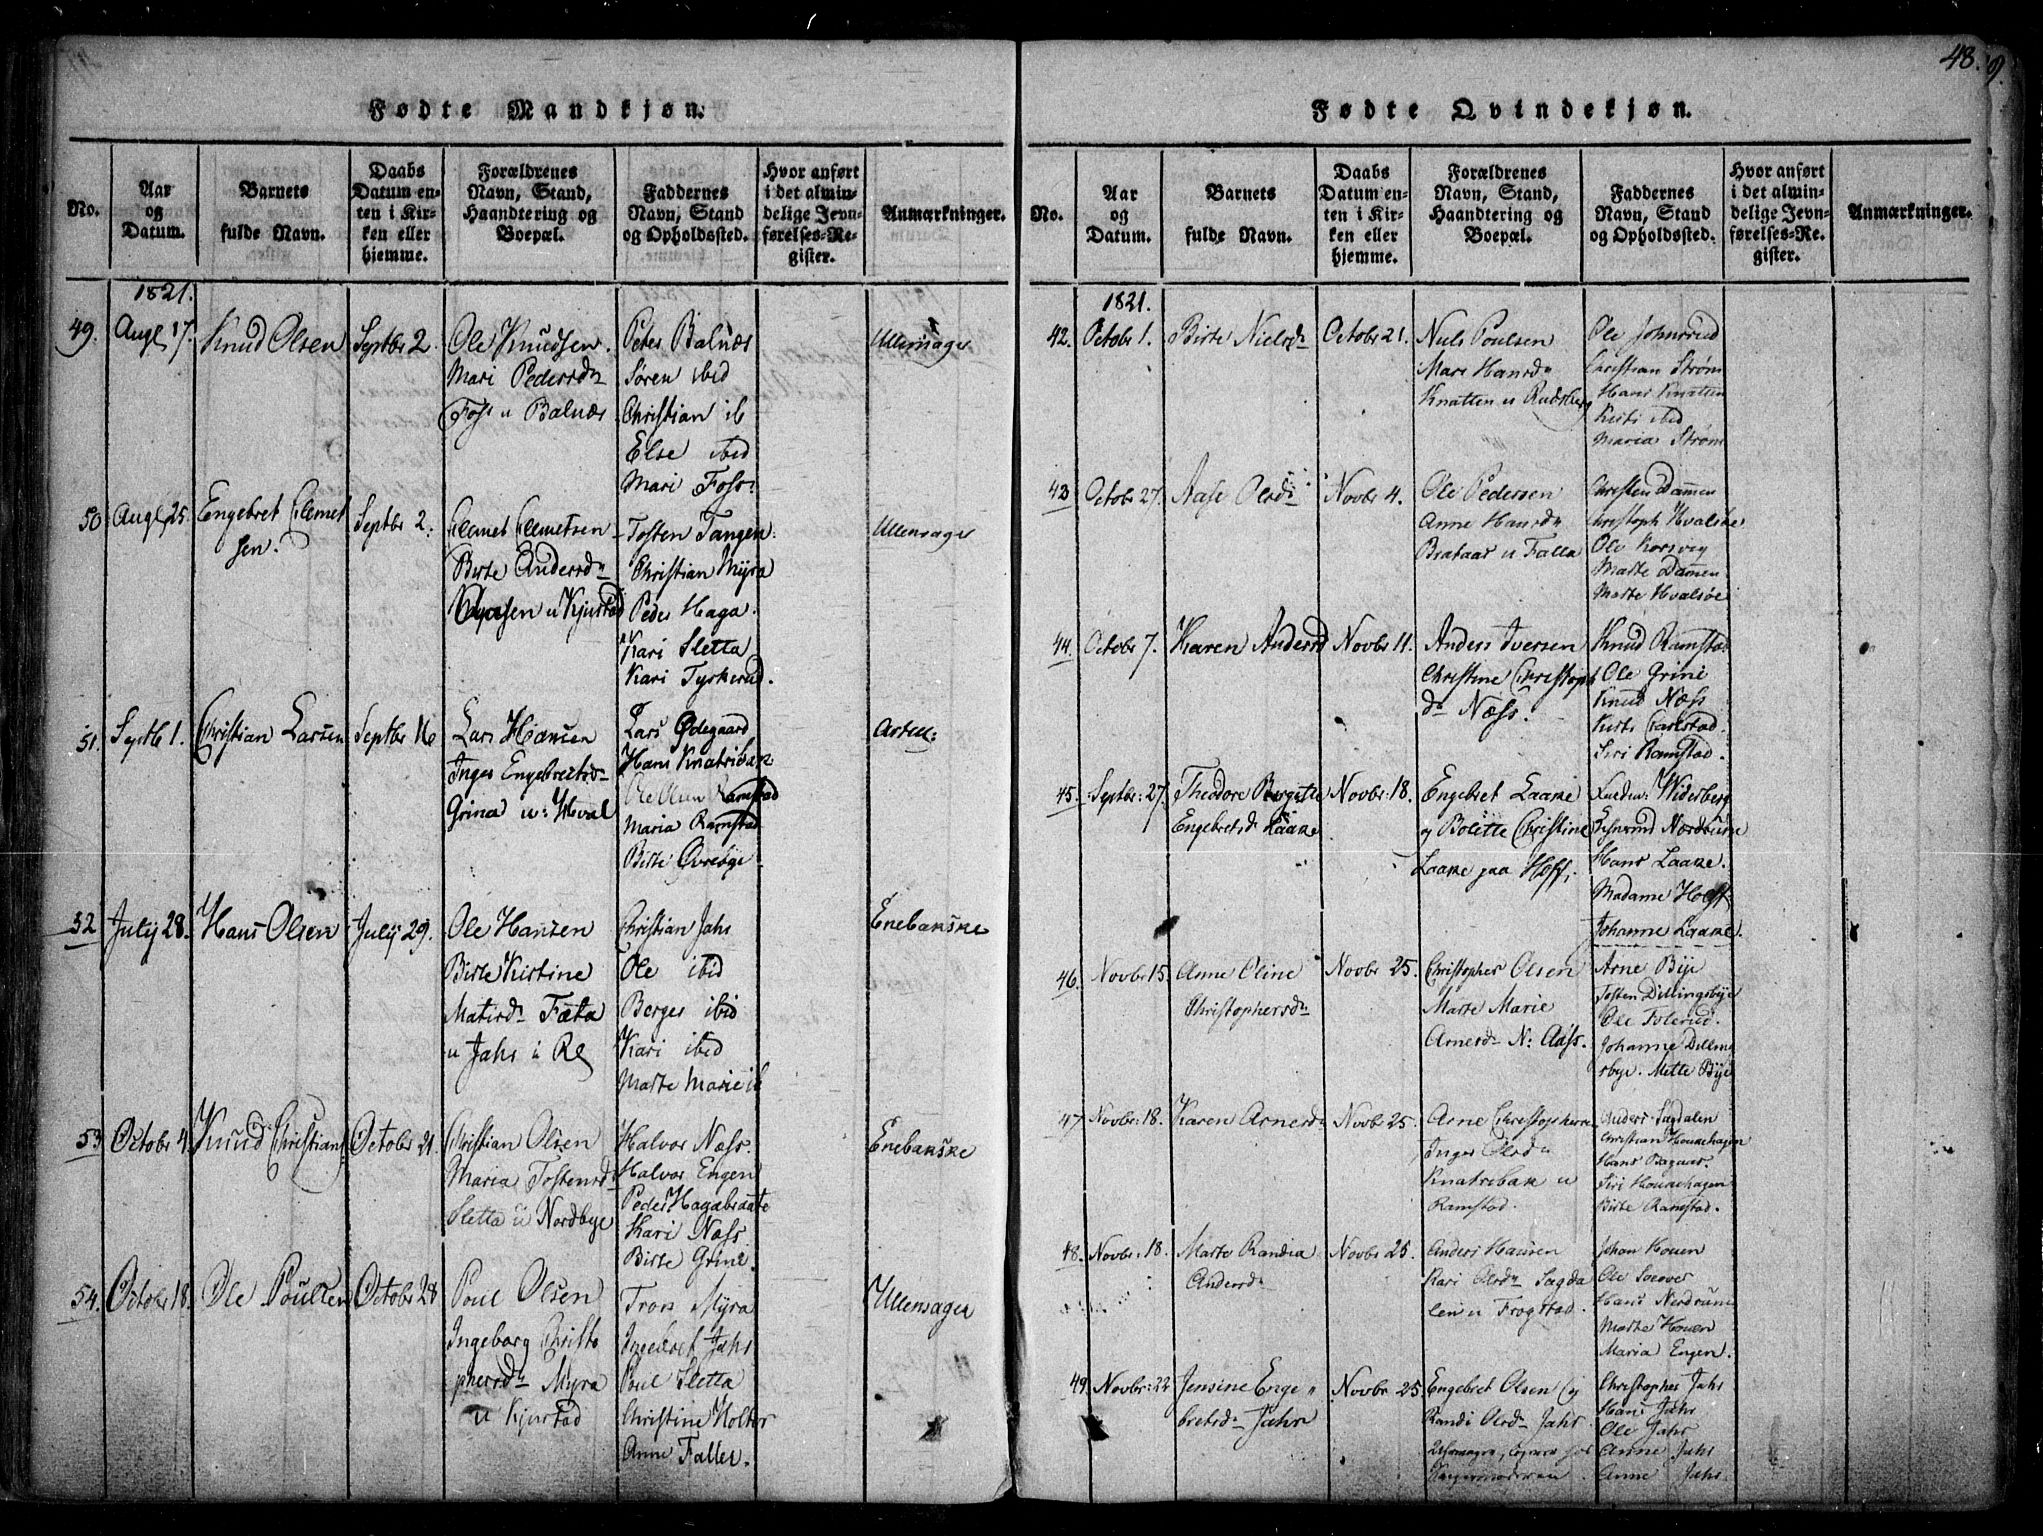 48.
9.
Fødte Mandkjøn.
No.
Aar
og
Datum.
Barnets
fulde Navn.
Daabs
Datum en-
ten i Kir-
ken eller
hjemme.
Forældrenes
Navn, Stand,
Haandtering og
Boepæl.
Faddernes
Navn, Stand
og Opholdssted.
Hvor anført
i det almin-
delige Jevn-
førelses-Re-
gister.
Anmærkninger.
1821.
49.
Augl 17.
Knud Olsen
Septbr 2.
Ole Knudsen.
Mari Pedersdn
Foss u Balnæs
Peter Balnæs
Sören ibid
Christian ib
Else ibid
Mari Foss.
Ullensager
50
Augl 25.
Engebret Clemet
sen.
Septbr 2.
Clemet Clemetsen
Birte Andersdn
u Kjustad
Tosten Tangen.
Christian Myra
Peder Haga.
Kari Sletta
Kari Tyskerud.
Ullensager
51.
Septb 1.
Christian Larsen
Septbr 16
Lars Hansen
Inger Engebretsd
Grina u: Hval
Lars Ødegaard
Hans Knatribak
Ole Olsen Ramstad
Maria Ramstad
Birte Øvrebye
52
July 28.
Hans Olsen
July 29.
Ole Hansen
Birte Kirstine
Matisdn Fæta
u Jahr i Re
Christian Jahr
Ole ibid
Berger ibid
Kari ibid
Marte Marie ib
Enebakske
53
Octobr 4.
Knud Christians
Octobr 21
Christian Olsen
Maria Tostensd
Sletta u Nordbye
Halvor Næss.
Halvor Engen
Peder Hagabraate
Kari Næss
Birte Grine.
Enebakske
54.
Octobr 18.
Ole Poulsen
Octobr 28
Poul Olsen
Ingeborg Christo
phersdn Myra
u Kjustad
Tron Myra
Ingebret Jahr
Poul Sletta
Christine Holter
Anne Faller.
Ullensager
Fødte Qvindekjøn.
No.
Aar
og
Datum.
Barnets
fulde Navn.
Daabs
Datum en-
ten i Kir-
ken eller
hjemme.
Forældrenes
Navn, Stand,
Haandtering og
Boepæl.
Faddernes
Navn, Stand
og Opholdssted.
Hvor anført
i det almin-
delige Jevn-
førelses-Re-
gister.
Anmærkninger.
1821.
42.
Octobr 1.
Birte Nielsdn
Octobr 21.
Niels Poulsen
Mari Hansdn
Knatten u Rudsberg
Ole Johnsrud
Christian Strøm
Hans Knatten
Kirsti ibid
Maria Strøm
43
Octobr 27.
Aase Olsdn
Novbr 4.
Ole Pedersen
Anne Hansdn
Brataas u Falla
Christen Dammen
Christoph Hvalsøe
Ole Korsveg
Marte Dammen
Marte Hvalsøe
44.
Octobr 7.
Karen Andersd
Novbr 11.
Anders Iversen
Christine Christoph
dn Næss.
Knud Ramstad
Ole Grini
Knud Næss
Kirsti Carlstad.
Siri Ramstad.
45.
Septbr: 27.
Theodore Bergitte
Engebretsd. Laake
Novbr: 18.
Engebret Laake
og Bolette Christine
Laake paa Hoff.
Widerberg
Nærdrum
Hans Laake.
Madame Hoff
Johanne Laake.
46.
Novbr 15.
Anne Oline
Christophersdn
Novbr 25.
Christopher Olsen
Marte Marie
Arnesdn N: Aass.
Arne Bye
Tosten Dillingsbye
Ole Tolerud.
Johanne Dillin
sbye. Mette Bye
47
Novbr: 18.
Karen Arnesdn
Novbr 25.
Arne Christophers
Inger Olsdn
Knatribak u
Ramstad.
Anders Sagdalen
Christian Houkehagen
Hans
Siri Houkehagen
Birte Ramstad.
48.
Novbr: 18.
Marte Randia
Andersdn
Novbr 25.
Anders Hansen
Kari Olsdn Sagda
len u Frogstad.
Johan Houen
Ole
Hans Nerdrum
Marte Houen
Maria Engen.
49
Novbr: 22
Jensine Enge
bretsdn Jahr
Novbr 25
Engebret Olsen og
Randi Olsdn Jahr
Christopher Jahr
Hans Jahr
Ole Jahr
Anne Jahr
Anne Jahr